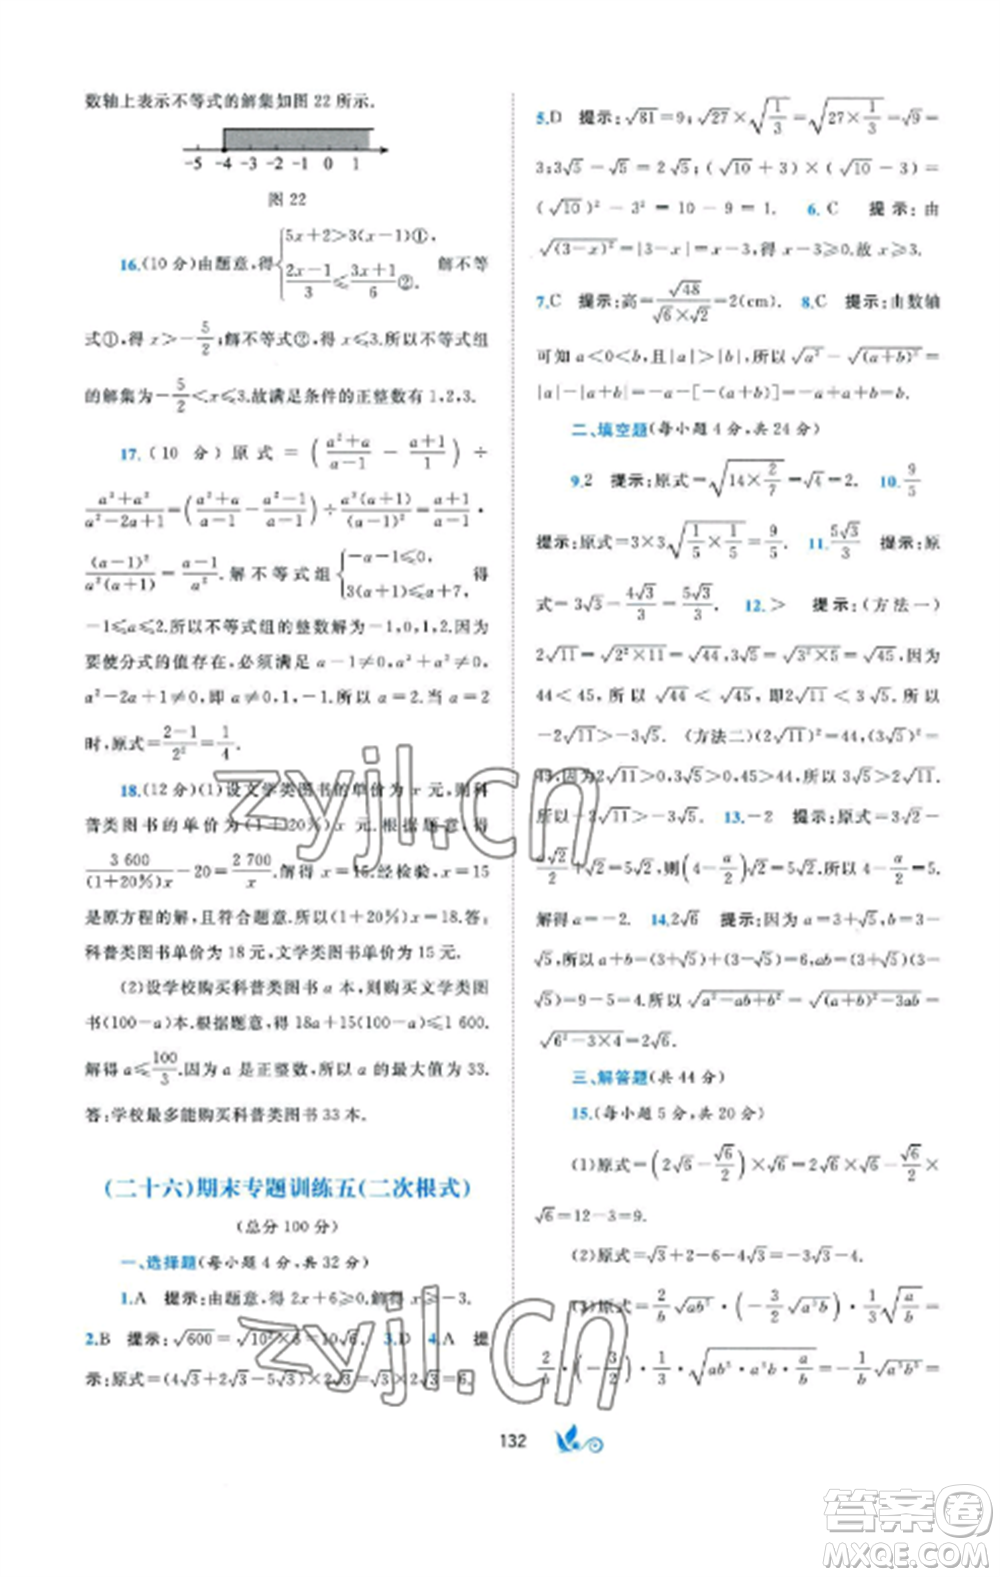 数轴上表示不等式的解集如图 22 所示.
-5 -4 -3 -2 -1 0 1
图 22
16.(10 分)由题意,得{5x+2>3(x-1)①, (2x-1)/3≤(3x+1)/6②. 解不等
式①,得 x>-5/2;解不等式②,得 x≤3.所以不等式组
的解集为-5/2<x≤3.故满足条件的正整数有1,2,3.
17.(10 分)原式=((a²+a)/(a-1)-(a+1)/1)÷
(a³+a²)/(a²-2a+1)=((a²+a)/(a-1)-(a²-1)/(a-1))÷(a²(a+1))/(a-1)²=(a+1)/(a-1)·
(a-1)²/(a²(a+1))=(a-1)/a².解不等式组{-a-1≤0, 3(a+1)≤a+7, 得
-1≤a≤2.所以不等式组的整数解为-1,0,1,2.
要使分式的值存在,必须满足 a-1≠0,a³+a²≠0,
a²-2a+1≠0,得 a≠0,1,-1.所以 a=2.当 a=2
时,原式=(2-1)/2²=1/4.
18.(12分)(1)设文学类图书的单价为 x 元,则科
普类图书的单价为(1+20%)x 元.根据题意,得
3 600/((1+20%)x)-20=2 700/x.解得 x=15.经检验,x=15
是原方程的解,且符合题意.所以(1+20%)x=18.答:
科普类图书单价为 18 元,文学类图书单价为 15 元.
(2)设学校购买科普类图书 a 本,则购买文学类图
书(100-a)本.根据题意,得 18a+15(100-a)≤1 600.
解得 a≤100/3.因为 a 是正整数,所以 a 最大值为 33.
答:学校最多能购买科普类图书 33 本.
(二十六)期末专题训练五(二次根式)
(总分 100 分)
一、选择题(每小题 4 分,共 32 分)
1.A 提示:由题意,得 2x+6≥0.解得 x≥-3.
2.B 提示:√600=√(10²×6)=10√6. 3.D 4.A 提
示:原式=(4√3+2√3-5√3)×2√3=√3×2√3=6.
5.D 提示:√81=9;√27×√(1/3)=√(27×1/3)=√9=
3;3√5-√5=2√5;(√10+3)×(√10-3)=
(√10)²-3²=10-9=1. 6.C 提示:由
√(3-x)²=|3-x|=3-x,得 3-x≥0.故 x≤3.
7.C 提示:高=√48/(√6×√2)=2(cm). 8.C 提示:由数轴
可知 a<0<b,且|a|>|b|,所以√a²-√(a+b)²=
|a|-|a+b|=-a-[-(a+b)]=-a+a+b=b.
二、填空题(每小题 4 分,共 24 分)
9.2 提示:原式=√(14×2/7)=√4=2. 10.9/5
提示:原式=3×3√(1/5×1/5)=9/5. 11.5√3/3 提示:原
式=3√3-4√3/3=5√3/3. 12.> 提示:(方法一)
2√11=√(2²×11)=√44,3√5=√(3²×5)=√45,因为
44<45,所以√44<√45,即2√11<3√5.所以
-2√11>-3√5.(方法二)(2√11)²=44,(3√5)²=
45,因为2√11>0,3√5>0,44<45,所以2√11<3√5.
所以-2√11>-3√5. 13.-2 提示:原式=3√2-
a√2/2+√2=5√2,则(4-a/2)√2=5√2.所以4-a/2=5.
解得a=-2. 14.2√6 提示:因为 a=3+√5,b=3-
√5,所以a+b=(3+√5)+(3-√5)=6,ab=(3+√5)(3-
√5)=9-5=4.所以√(a²-ab+b²)=√((a+b)²-3ab)=
√(6²-3×4)=2√6.
三、解答题(共 44 分)
15.(每小题 5 分,共 20 分)
(1)原式=(2√6-√6/2)×√6=2√6×√6-√6/2×
√6=12-3=9.
(2)原式=√3+2-6-2√3=-√3-4.
(3)原式=2/b √ab⁵·(-3/2 √a³b)·1/3 √(a/b)=
2/b·(-3/2)·1/3·√(ab⁵·a³b·a/b)=-1/b √(a⁵b⁵)=
132
zyjl.cn
zyjl.cn
答案圈
MXQE.COM